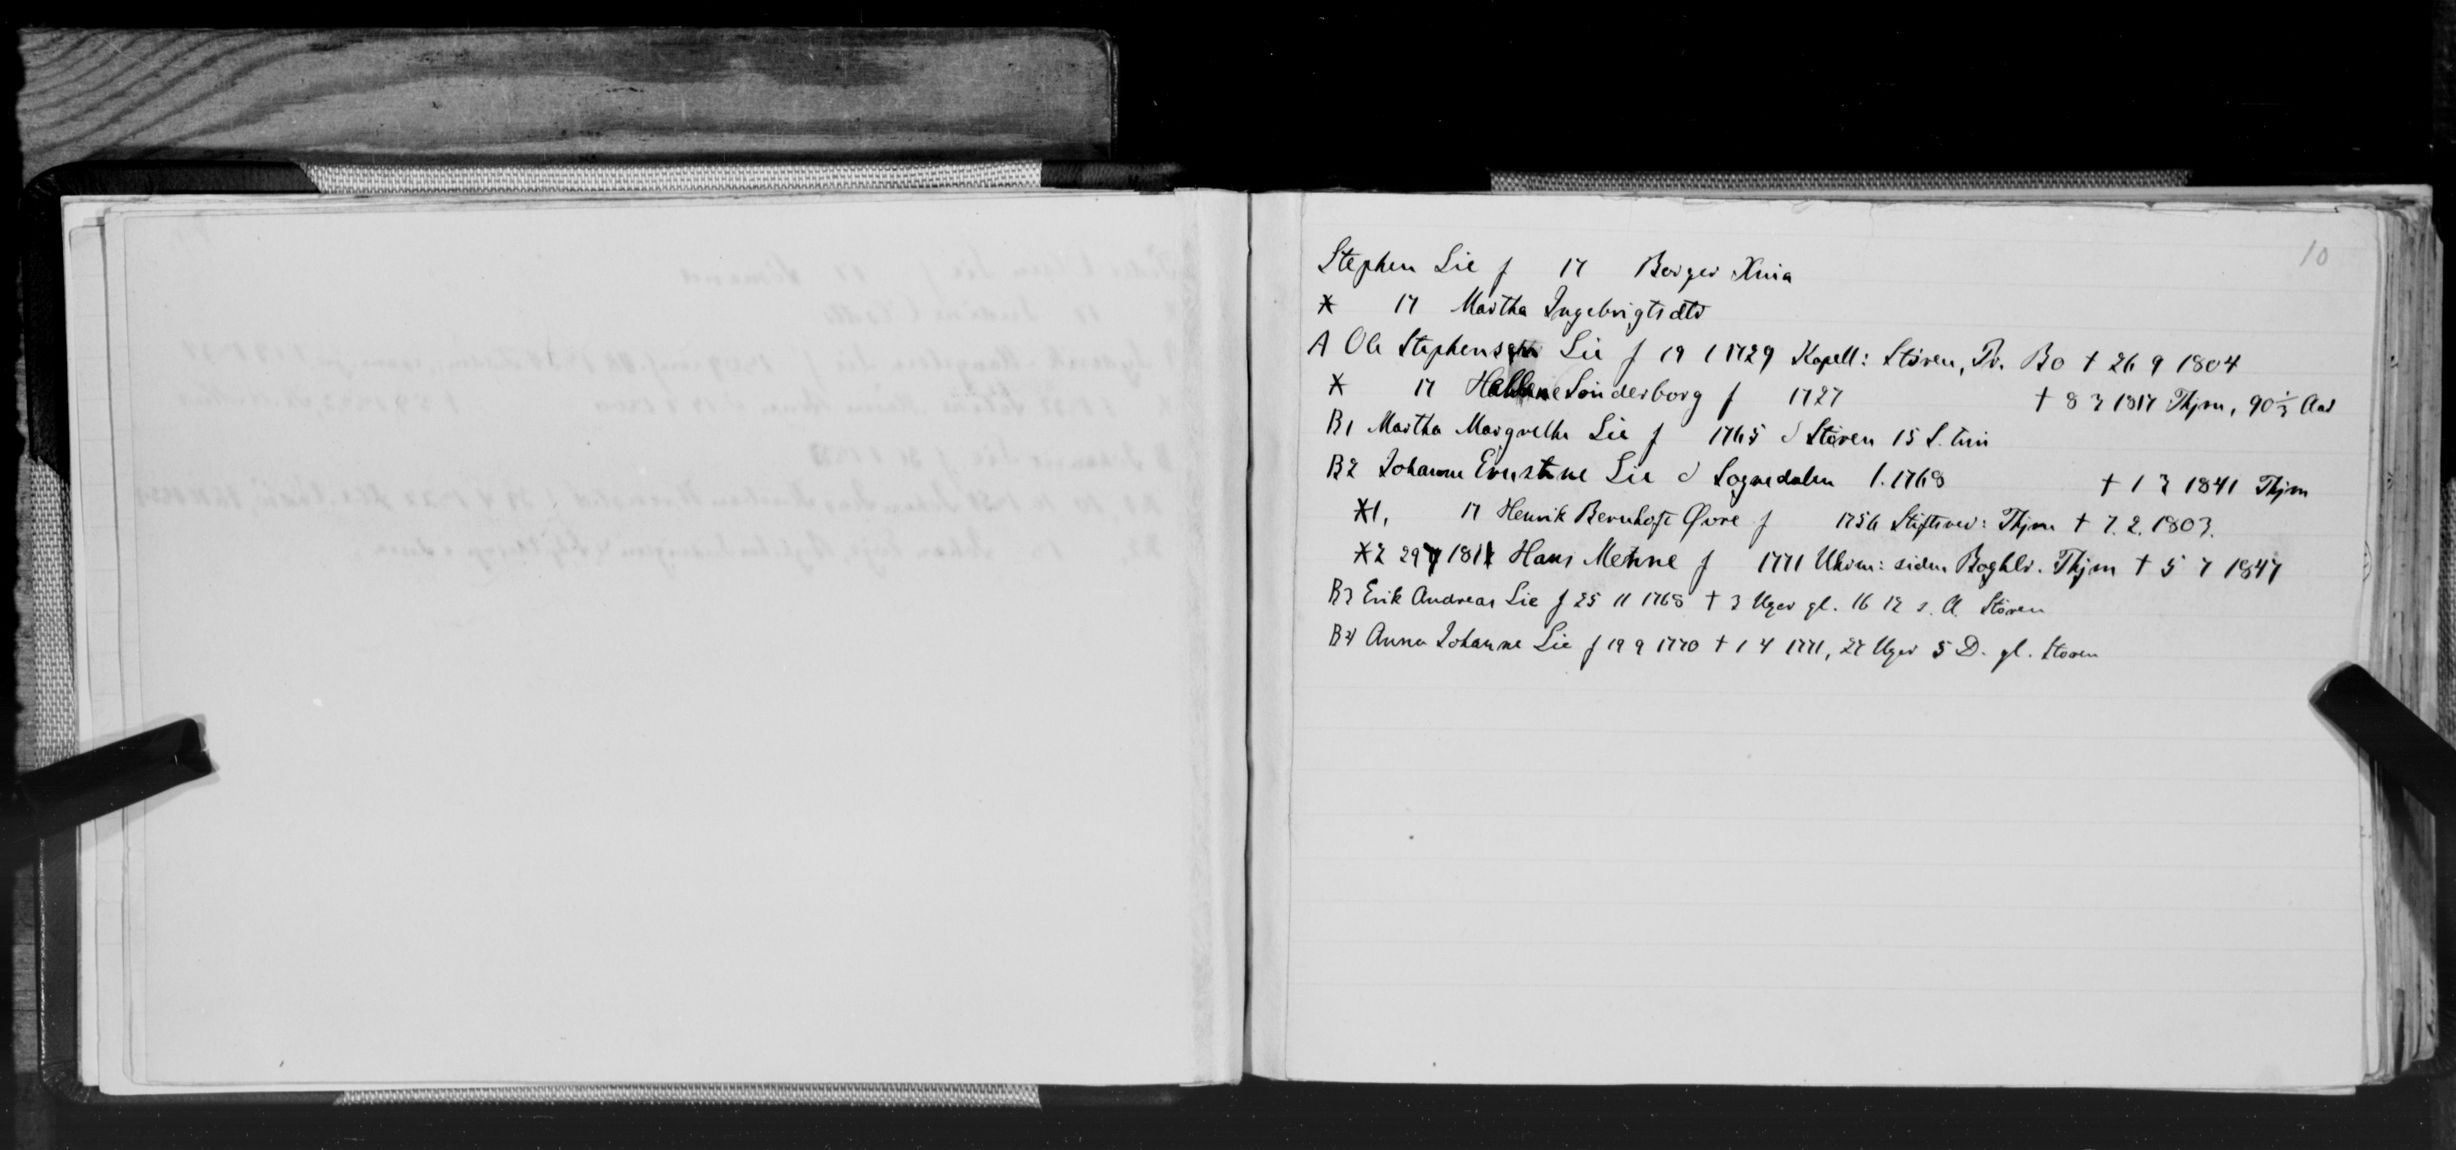 10
Stephen Lie f 17 Borger Xnia
X 17 Martha Ingebrigtsdtr
A Ole Stephensen Lie f 19 1 1729 Kapell: Støren, Tr. Bo † 26 9 1804
X 17 Sønderborg f 1727 † 8 3 1817 Thjm, 90 1/3 Aar
B1 Martha Margrethe Lie f 1765 d Støren 15 S. trin
B2 Johanne Lie d Sognedalen 1.1768 † 1 3 1841 Thjm
X1, 17 Henrik Bernhoft Øvre f 1756 Stiftsrev: Thjm † 7. 2. 1803.
X2 29 7 181 Hans Mehne f 1771 Uhrm: siden Boghlr. Thjm † 5 7 1847
B3 Erik Andreas Lie f 25 11 1768 † 3 Uger gl. 16 12 s. A. Støren
B4 Anna Johanne Lie f 19 9 1770 † 1 4 1771, 27 Uger 5 D. gl. Støren